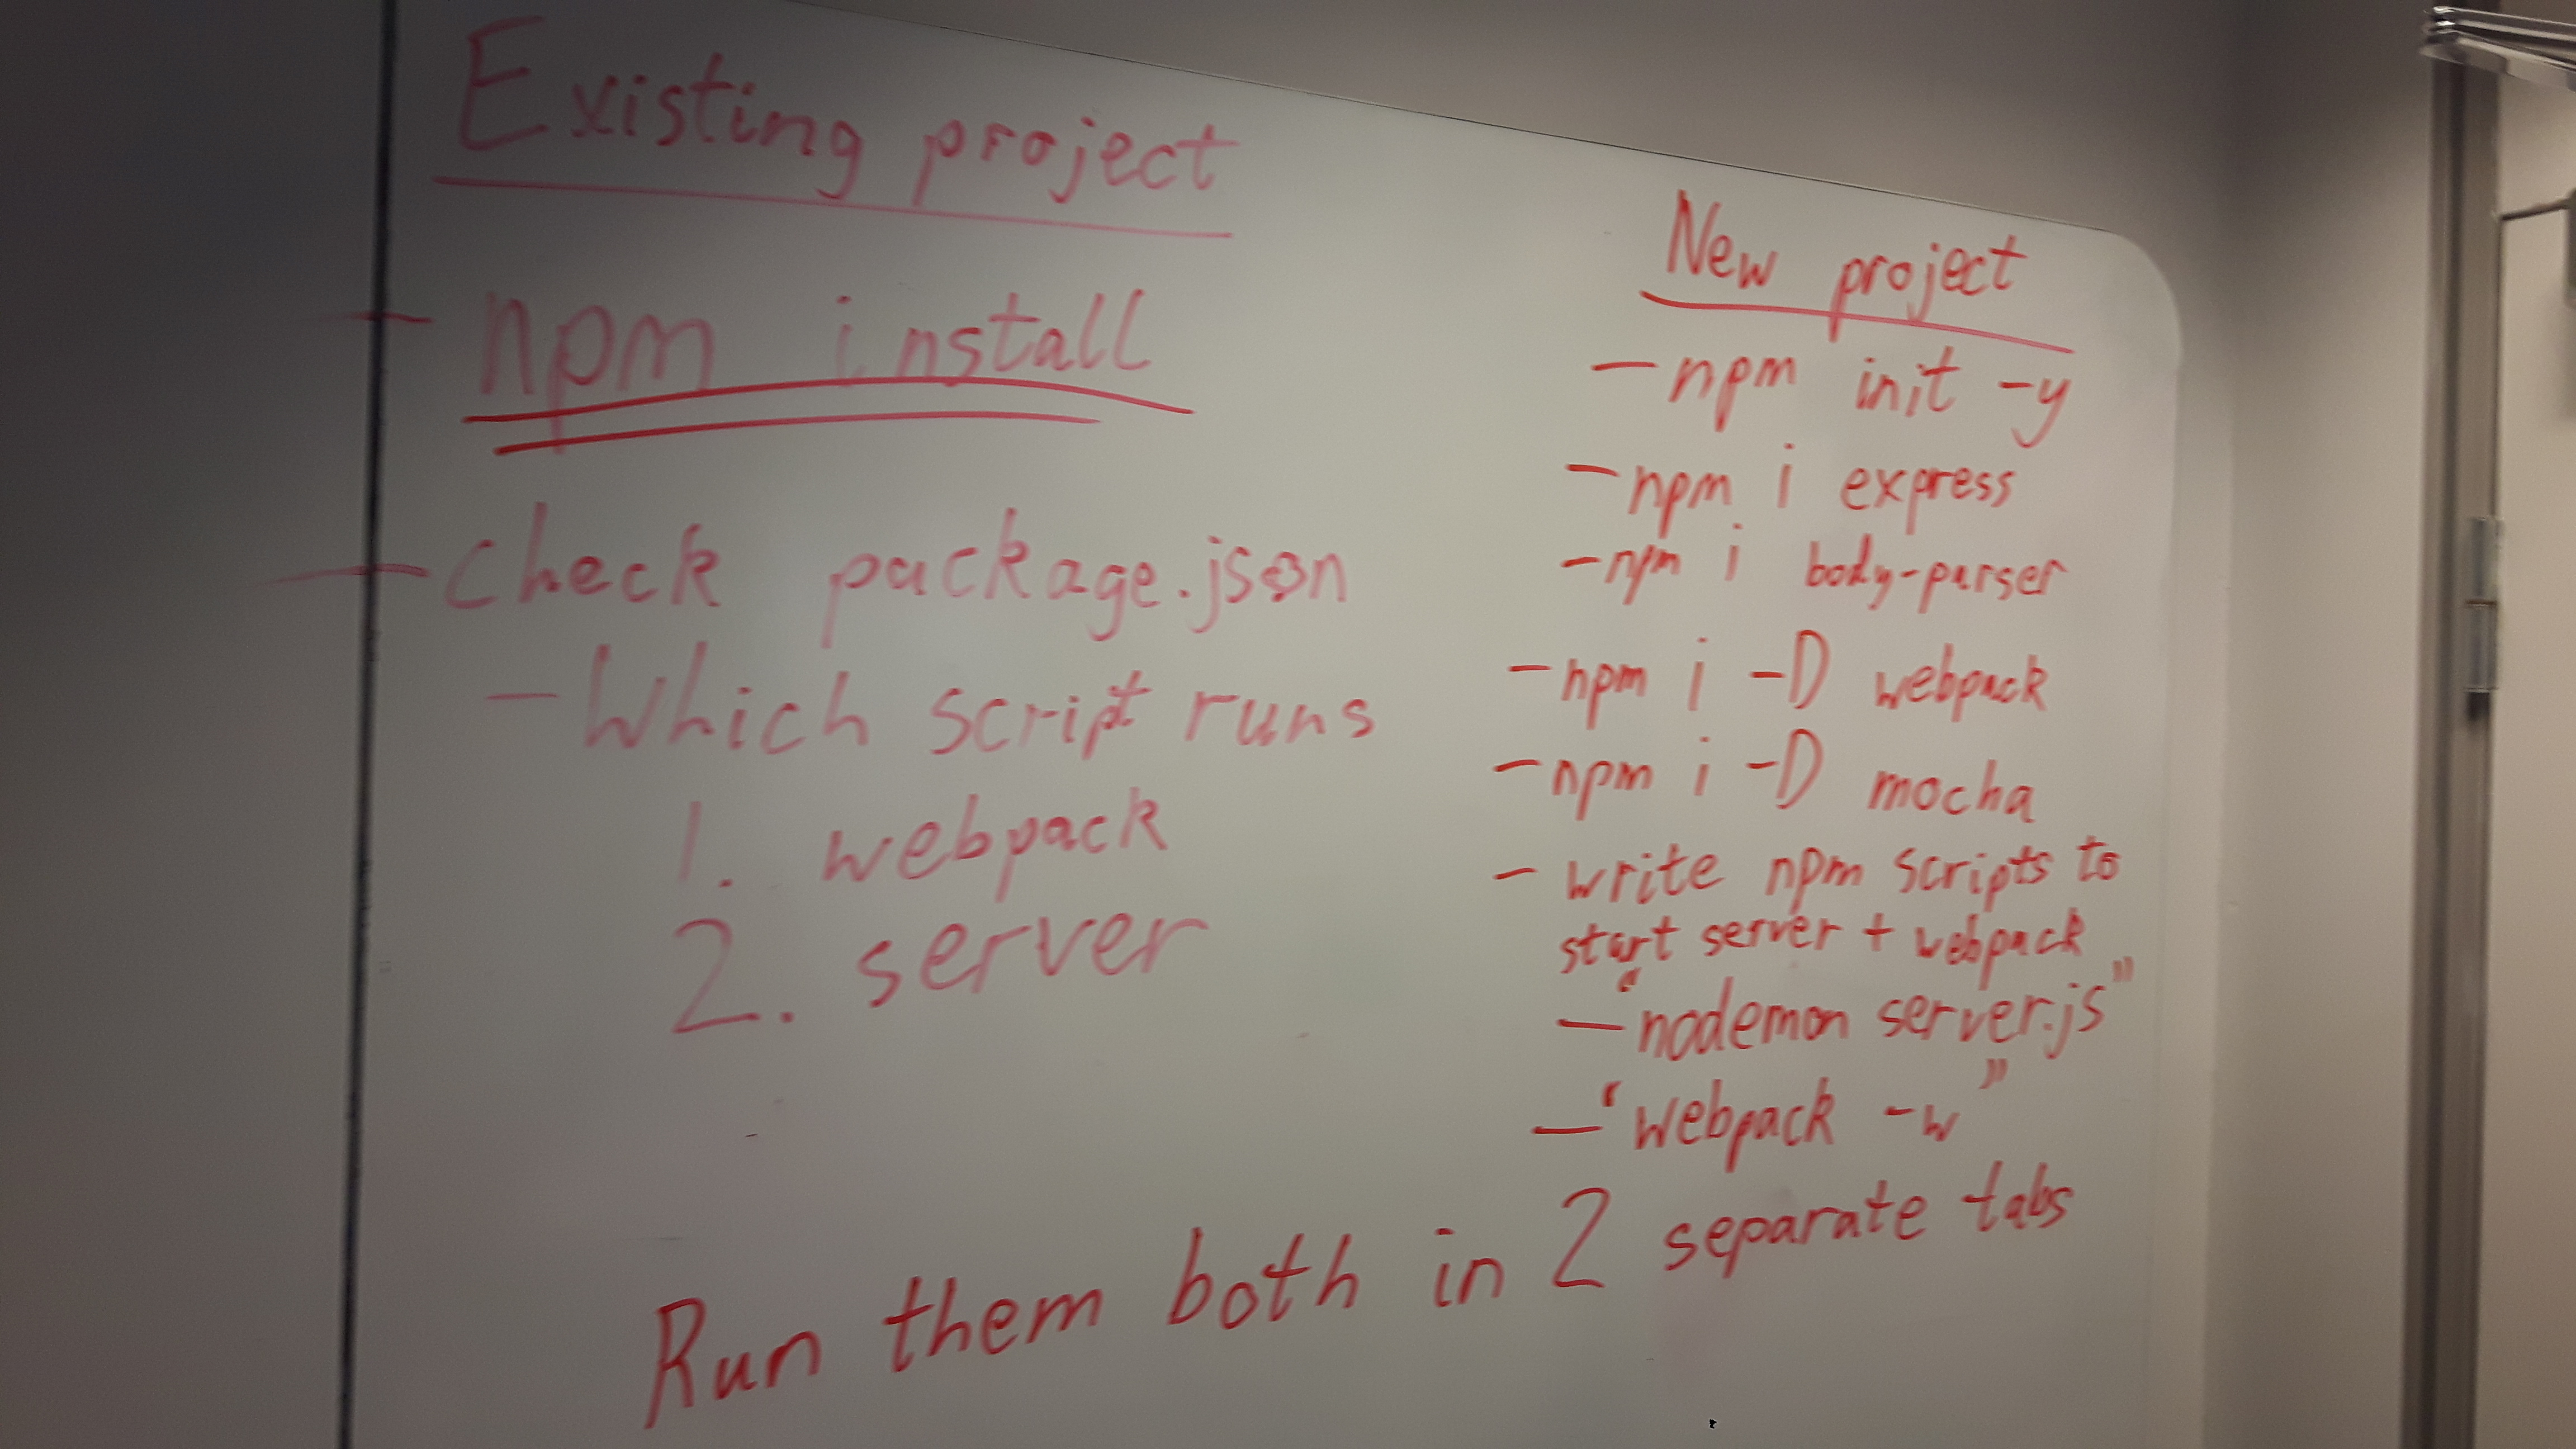 Existing project
- npm install
- check package.json
- Which script runs
1. webpack
2. server
New project
- npm init -y
- npm i express
- npm i body-parser
- npm i -D webpack
- npm i -D mocha
- write npm scripts to
start server + webpack
- "nodemon server.js"
- "webpack -w"
Run them both in 2 separate tabs